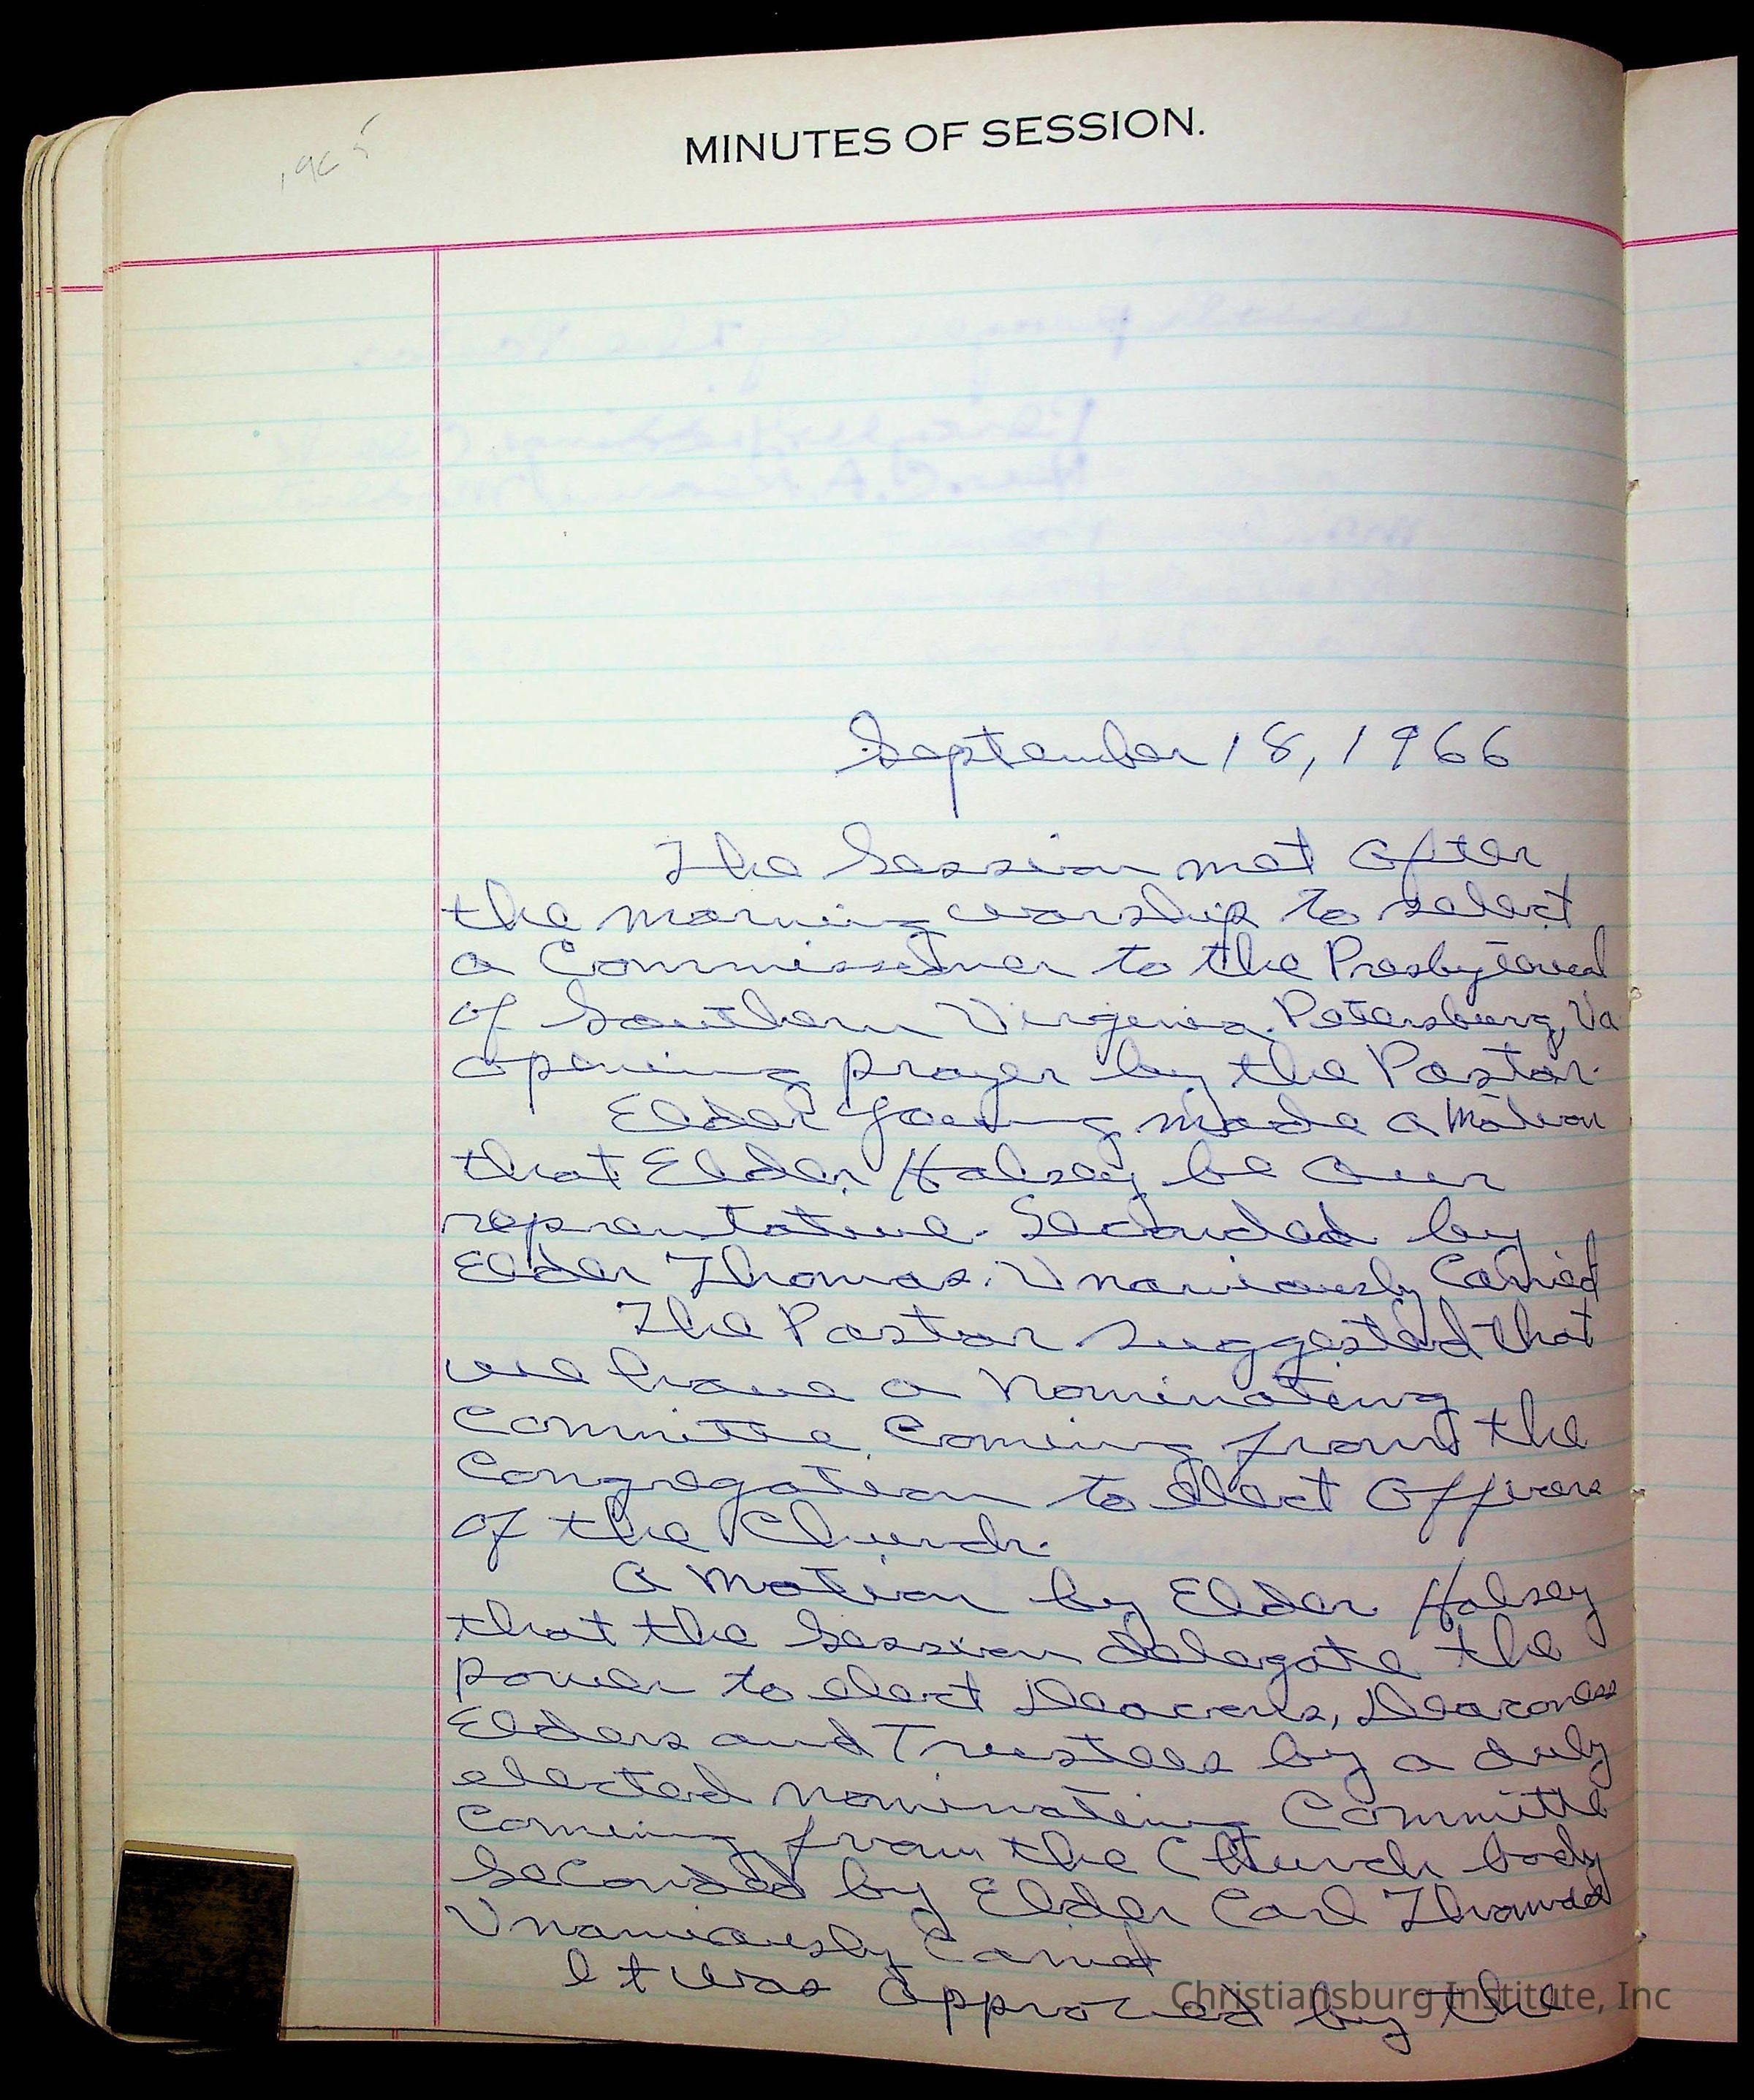 MINUTES OF SESSION.
September 18, 1966
The Session met after
the morning worship to select
a Commissioner to the Presbyterial
of Southern Virginia. Petersburg, Va
opening prayer by the Pastor.
Elder Young made a Motion
that Elder Halsey be our
reprentative. Seconded by
Elder Thomas. Unaniously Carried
The Pastor suggested that
we have a Nominating
Committe Coming from the
Congregation to elect Officers
of the Church.
A Motion by Elder Halsey
that the Session delegate the
power to elect Deacons, Deaconess
Elders and Trustees by a duly
elected nominating Committe
Coming from the Church body
Seconded by Elder Carl Thomas
Unaniously Carried
It was approved by the
Christiansburg Institute, Inc